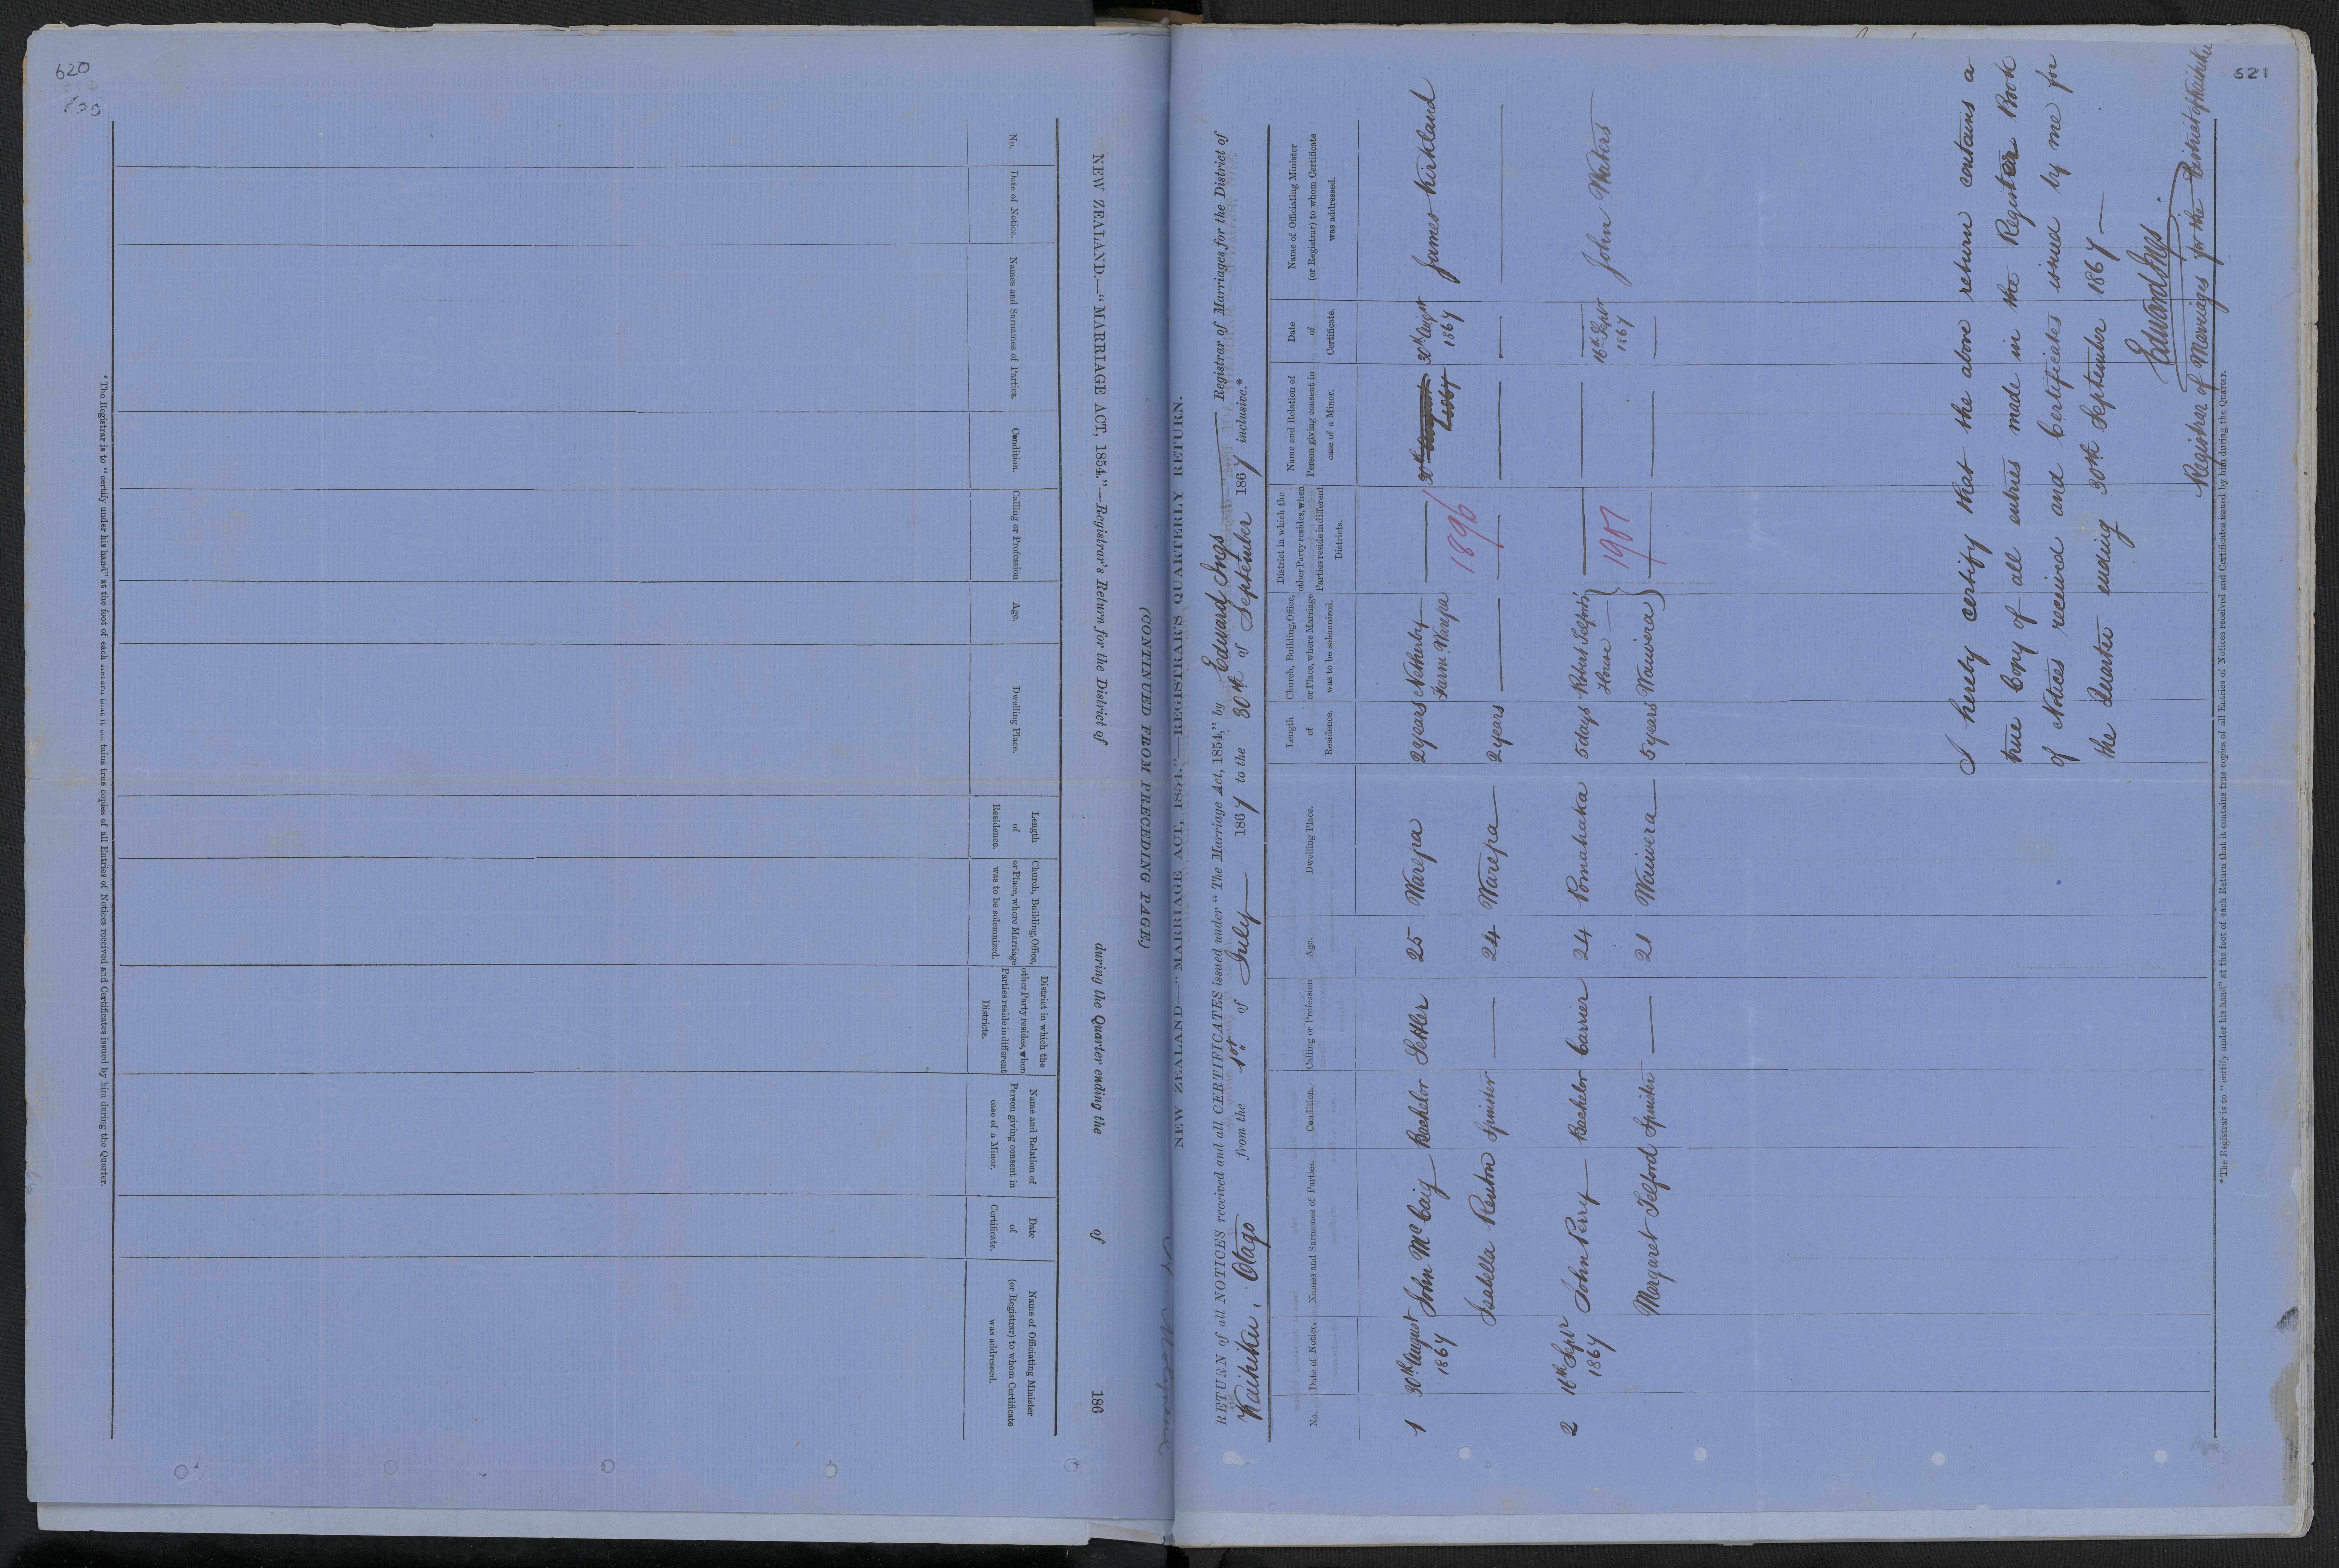 620
NEW ZEALAND.—"MARRIAGE ACT, 1854."—Registrar's Return for the District of during the Quarter ending the of 186
(CONTINUED FROM PRECEDING PAGE.)
No.
Date of Notice.
Names and Surnames of Parties.
Condition.
Calling or Profession
Age.
Dwelling Place.
Length of Residence.
Church, Building, Office, or Place, where Marriage was to be solemnized.
District in which the other Party resides, when Parties reside in different Districts.
Name and Relation of Person giving consent in case of a Minor.
Date of Certificate.
Name of Officiating Minister (or Registrar) to whom Certificate was addressed.
*The Registrar is to "certify under his hand" at the foot of each Return that it contains true copies of all Entries of Notices received and Certificates issued by him during the Quarter.
621
NEW ZEALAND—"MARRIAGE ACT, 1854."—REGISTRAR'S QUARTERLY RETURN.
RETURN of all NOTICES received and all CERTIFICATES issued under "The Marriage Act, 1854," by Edward Ings Registrar of Marriages for the District of
Kaihiku, Otago from the 1st of July 1867 to the 30th of September 1867 inclusive.*
No.
Date of Notice.
Names and Surnames of Parties.
Condition.
Calling or Profession
Age.
Dwelling Place.
Length of Residence.
Church, Building, Office, or Place, where Marriage was to be solemnized.
District in which the other Party resides, when Parties reside in different Districts.
Name and Relation of Person giving consent in case of a Minor.
Date of Certificate.
Name of Officiating Minister (or Registrar) to whom Certificate was addressed.
1 30th August John McCaig Bachelor Settler 25 Warepa 2 years Netherby — 30th August 30th August James Kirkland
1867 Farm Warepa 1896 1867 1867
Isabella Renton Spinster — 24 Warepa 2 years — — — — —
2 16th Septr John Perry Bachelor Carrier 24 Pomahaka 5 days Robert Telford's — — 16th Septr John Waters
1867 House 1901 1867
Margaret Telford Spinster — 21 Waiwera 5 years Waiwera — — —
I hereby certify that the above return contains a
true Copy of all entries made in the Register Book
of Notices received and Certificates issued by me for
the Quarter ending 30th September 1867—
Edward Ings.
Registrar of Marriages for the District of Kaihiku
*The Registrar is to "certify under his hand" at the foot of each Return that it contains true copies of all Entries of Notices received and Certificates issued by him during the Quarter.